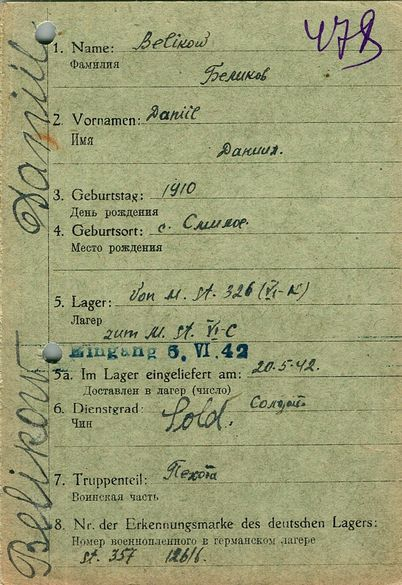 478
1. Name: Belikow
Фамилия
Беликов
2. Vornamen: Daniil
Имя
Даниил.
3. Geburtstag: 1910
День рождения
4. Geburtsort: с. Смилое.
Место рождения
5. Lager: von M. St. 326 (VI-K)
Лагерь
zum M. St. VI-C
Eingang 6. VI. 42
5a. Im Lager eingeliefert am: 20.5.42.
Доставлен в лагерь (число)
6. Dienstgrad: Sold. Солдат
Чин
7. Truppenteil: Пехота
Воинская часть
8. Nr. der Erkennungsmarke des deutschen Lagers:
Номер военнопленного в германском лагере
St. 357 12616
Belikow Daniil